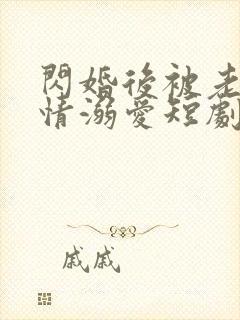 閃婚後被老
情溺愛短劇
戚戚